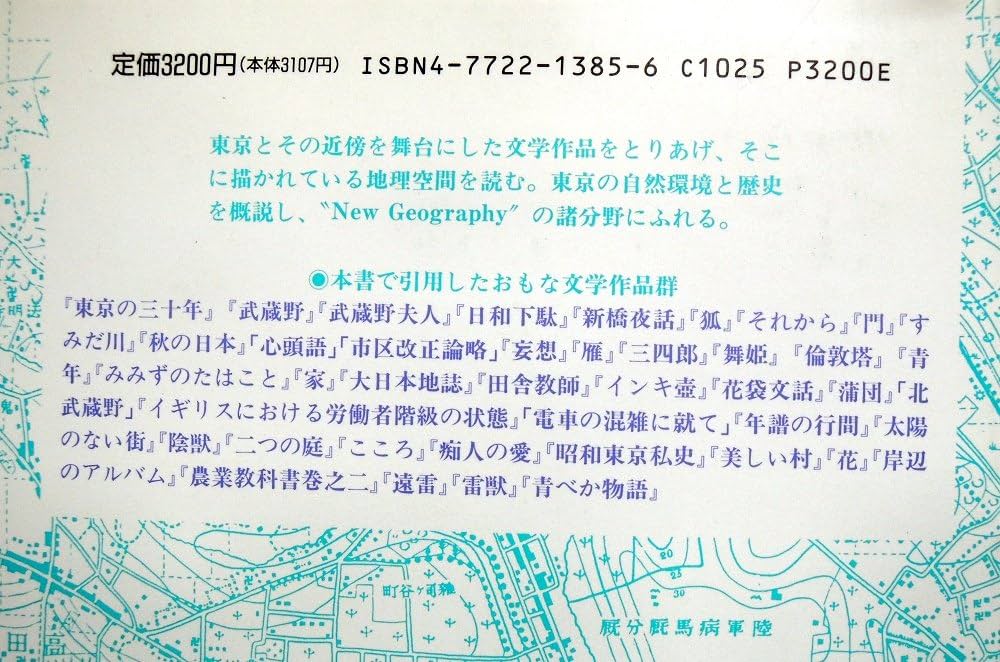 定価3200円(本体3107円) ISBN4-7722-1385-6 C1025 P3200E
東京とその近傍を舞台にした文学作品をとりあげ、そこ
に描かれている地理空間を読む。東京の自然環境と歴史
を概説し、〝New Geography〞の諸分野にふれる。
◉本書で引用したおもな文学作品群
『東京の三十年』『武蔵野』『武蔵野夫人』『日和下駄』『新橋夜話』『狐』『それから』『門』『す
みだ川』『秋の日本』「心頭語」「市区改正論略」『妄想』『雁』『三四郎』『舞姫』『倫敦塔』『青
年』『みみずのたはこと』『家』『大日本地誌』『田舎教師』『インキ壺』『花袋文話』『蒲団』「北
武蔵野」『イギリスにおける労働者階級の状態』「電車の混雑に就て」『年譜の行間』『太陽
のない街』『陰獣』『二つの庭』『こころ』『痴人の愛』『昭和東京私史』『美しい村』『花』『岸辺
のアルバム』『農業教科書巻之二』『遠雷』『雷獣』『青べか物語』
町谷ヶ司雑
厩分厩馬病軍陸
田
高
20
25
30
大
鬼